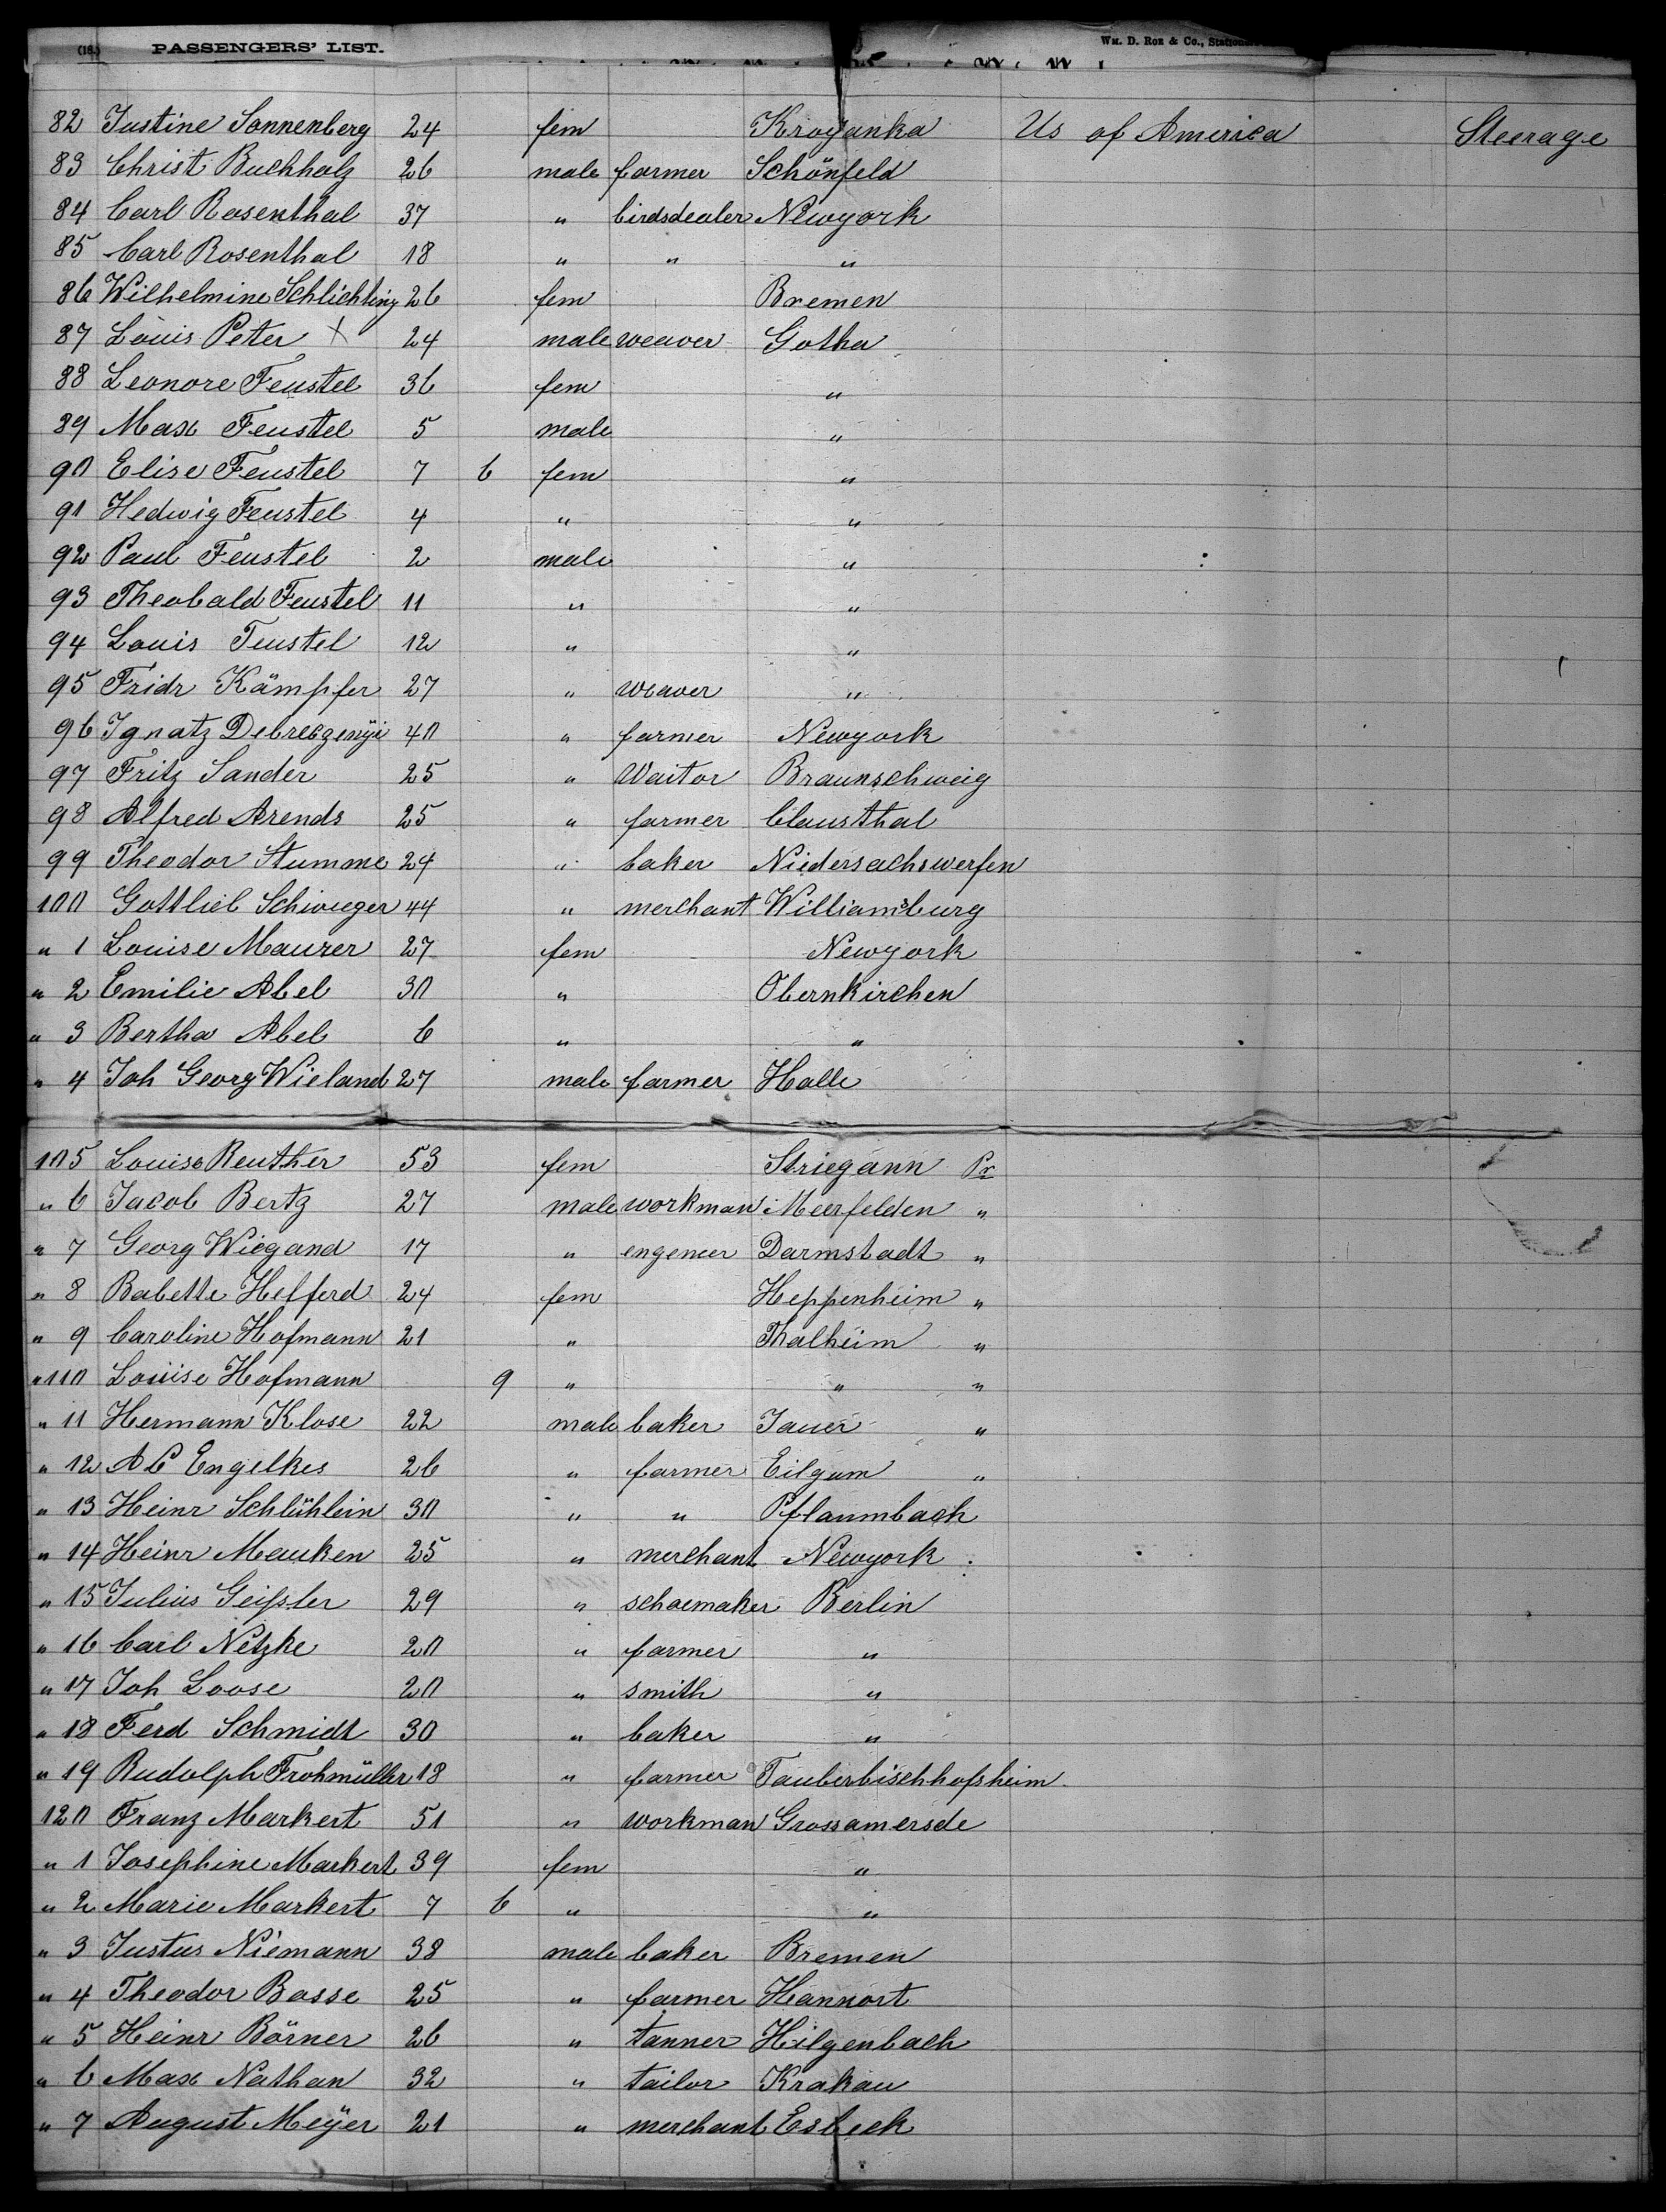 (16.) PASSENGERS' LIST. Wm. D. Roe & Co., Stationers
82 Justine Sonnenberg 24 fem Kroyanka Us of America Steerage
83 Christ Buchholz 26 male farmer Schönfeld
84 Carl Rosenthal 37 " birdsdealer Newyork
85 Carl Rosenthal 18 " " "
86 Wilhelmine Schlichting 26 fem Bremen
87 Louis Peter X 24 male weaver Gotha
88 Leonore Feustel 36 fem "
89 Max Feustel 5 male "
90 Elise Feustel 7 6 fem "
91 Hedwig Feustel 4 " "
92 Paul Feustel 2 male "
93 Theobald Feustel 11 " "
94 Louis Feustel 12 " "
95 Fridr Kämpfer 27 " weaver "
96 Ignatz Debreczenyi 40 " farmer Newyork
97 Fritz Sander 25 " Waitor Braunschweig
98 Alfred Arends 25 " farmer Clausthal
99 Theodor Stumme 24 " baker Niedersachswerfen
100 Gottlieb Schwieger 44 " merchant Williamsburg
" 1 Louise Maurer 27 fem Newyork
" 2 Emilie Abel 30 " Obernkirchen
" 3 Bertha Abel 6 " "
" 4 Joh Georg Wieland 27 male farmer Halle
105 Louise Reuther 53 fem Striegann Pr
" 6 Jacob Bertz 27 male workman Meerfelden "
" 7 Georg Wiegand 17 " engeneer Darmstadt "
" 8 Babette Helferd 24 fem Heppenheim "
" 9 Caroline Hofmann 21 " Thalheim "
" 110 Louise Hofmann 9 " " "
" 11 Hermann Klose 22 male baker Jauer "
" 12 A C Engelkes 26 " farmer Eilgum "
" 13 Heinr Schlühlein 30 " " Pflaumbach
" 14 Heinr Mauken 25 " merchant Newyork
" 15 Julius Geißler 29 " schoemaker Berlin
" 16 Carl Netzke 20 " farmer "
" 17 Joh Loose 20 " smith "
" 18 Ferd Schmidt 30 " baker "
" 19 Rudolph Frohmüller 18 " farmer Tauberbischhofsheim
120 Franz Markert 51 " workman Grossamersde
" 1 Josephine Markert 39 fem "
" 2 Marie Markert 7 6 " "
" 3 Justus Niemann 38 male baker Bremen
" 4 Theodor Basse 25 " farmer Hannort
" 5 Heinr Börner 26 " tanner Hilgenbach
" 6 Max Nathan 32 " tailor Krakau
" 7 August Meÿer 21 " merchant Esbeck